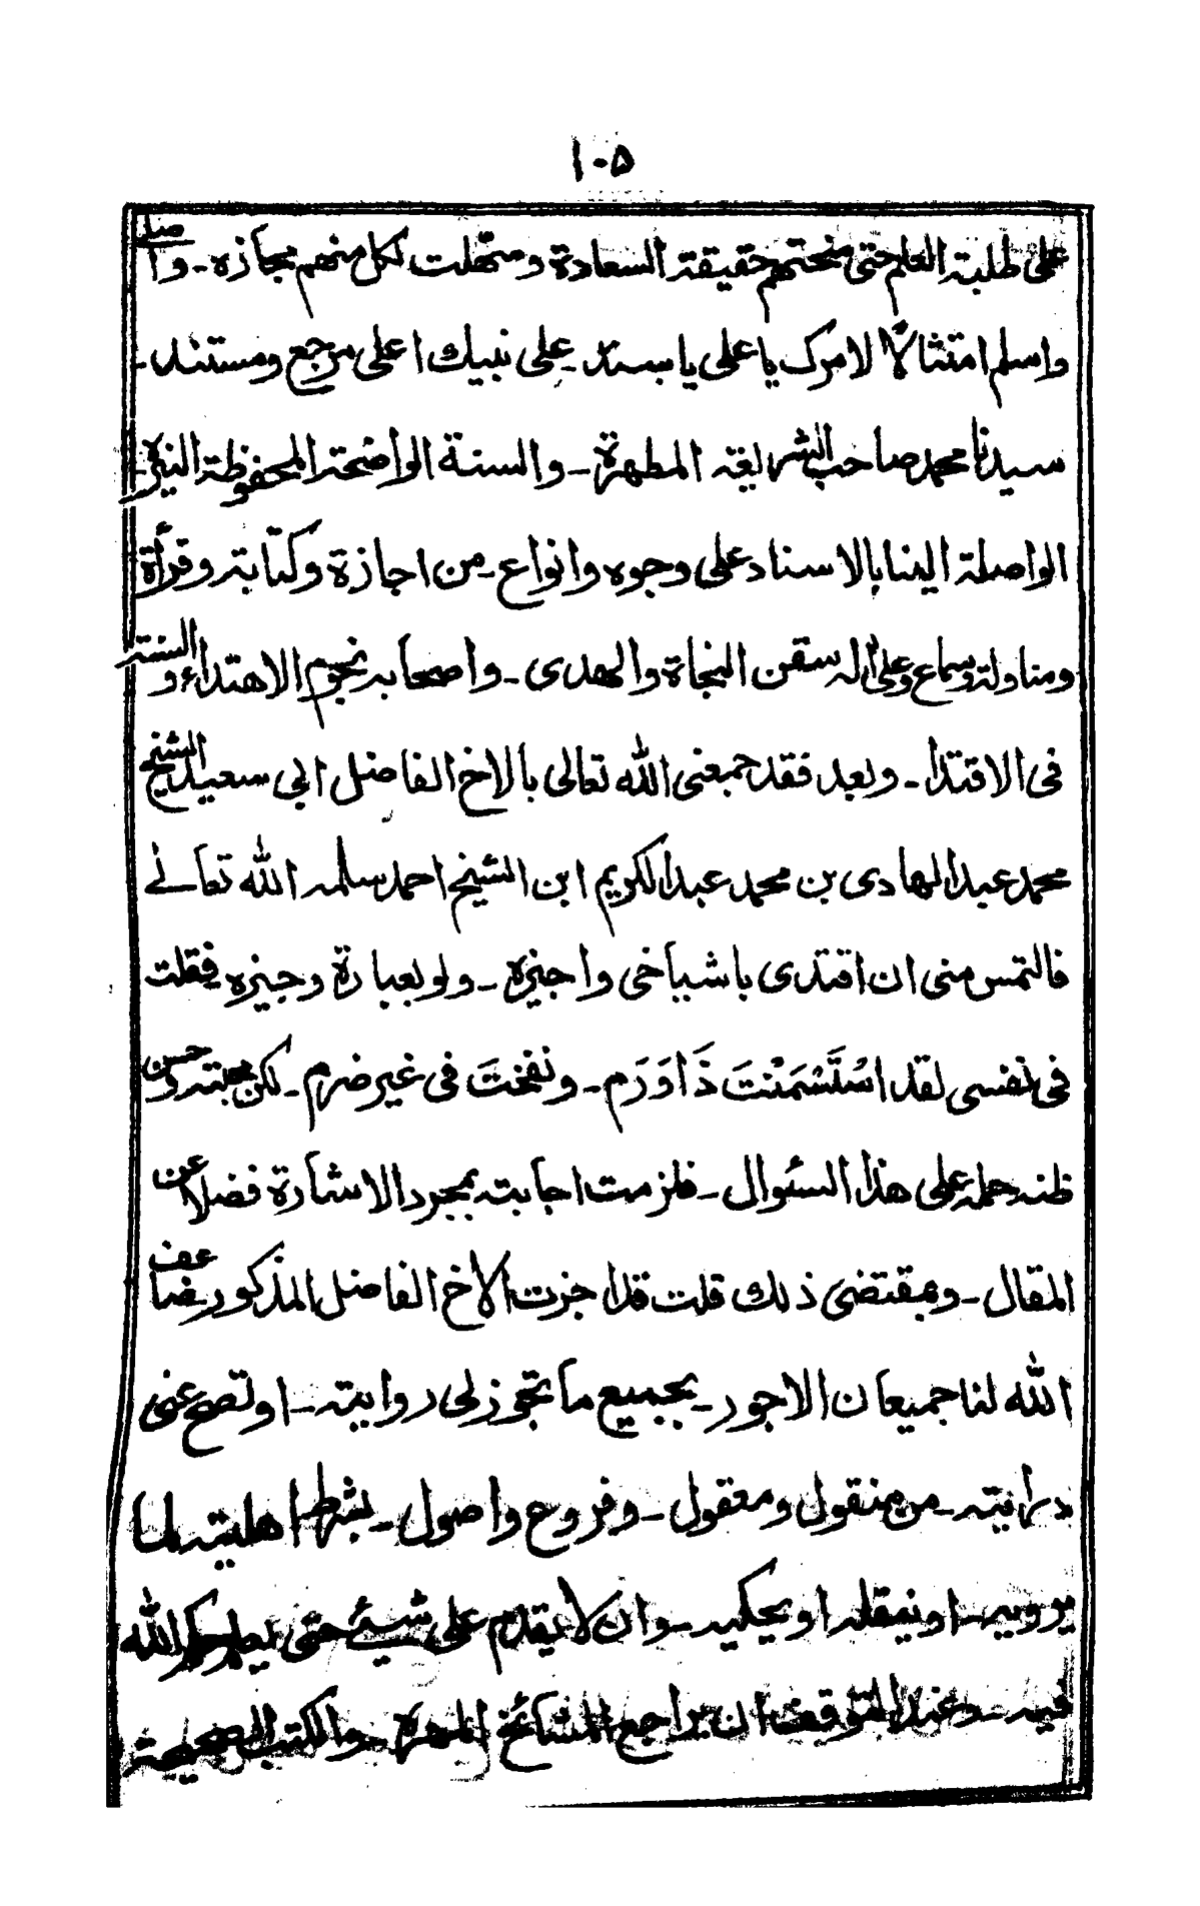 ١٠٥
على طلبة العلم حتى منحتهم حقيقة السعادة ومتهلت لكل منهم مجازه۔ واصلى
واسلم امتثالاً لامرك يا على يا سند۔ على نبيك اعلى مرجع ومستند۔
سيدنا محمد صاحب الشريعة المطهرة۔ والسنة الواضحة المحفوظة النيرة۔
الواصلة الينا بالاسناد على وجوه وانواع۔ من اجازة وكتابة وقرأة
ومناولة وسماع وعلى اٰله سفن النجاة والهدى۔ واصحابه نجوم الاهتداء والسنة
فى الاقتدا۔ وبعد فقد جمعنى الله تعالى بالاخ الفاضل ابى سعيد الشيخ
محمد عبد الهادى بن محمد عبد الكريم ابن الشيخ احمد سلمه الله تعالے
فالتمس منى ان اقتدى باشياخى واجيزه۔ ولو بعبارة وجيزه فقلت
فى نفسى لقد اسْتَسْمَنْتَ ذَا وَرَم۔ ونفختَ فى غير ضرم۔ لكن محبته وحسن
ظنه حمله على هذا السئوال۔ فلزمت اجابته بمجرد الاشارة فضلا عن
المقال۔ وبمقتضى ذلك قلت قد اجزت الاخ الفاضل المذكور ضاعف
الله لنا جميعا ن الاجور۔ بجميع ما تجوز لى روايته۔ او تصح عنى
درايته۔ من منقول ومعقول۔ وفروع واصول۔ بشرط اهليته لما
يرويه۔ او ينقله او يحكيه۔ وان لا يقدم على شيئے حتى يعلم حكم الله
فيه۔ وعند التوقف ان يراجع المشائخ المهرة۔ والكتب الصحيحة